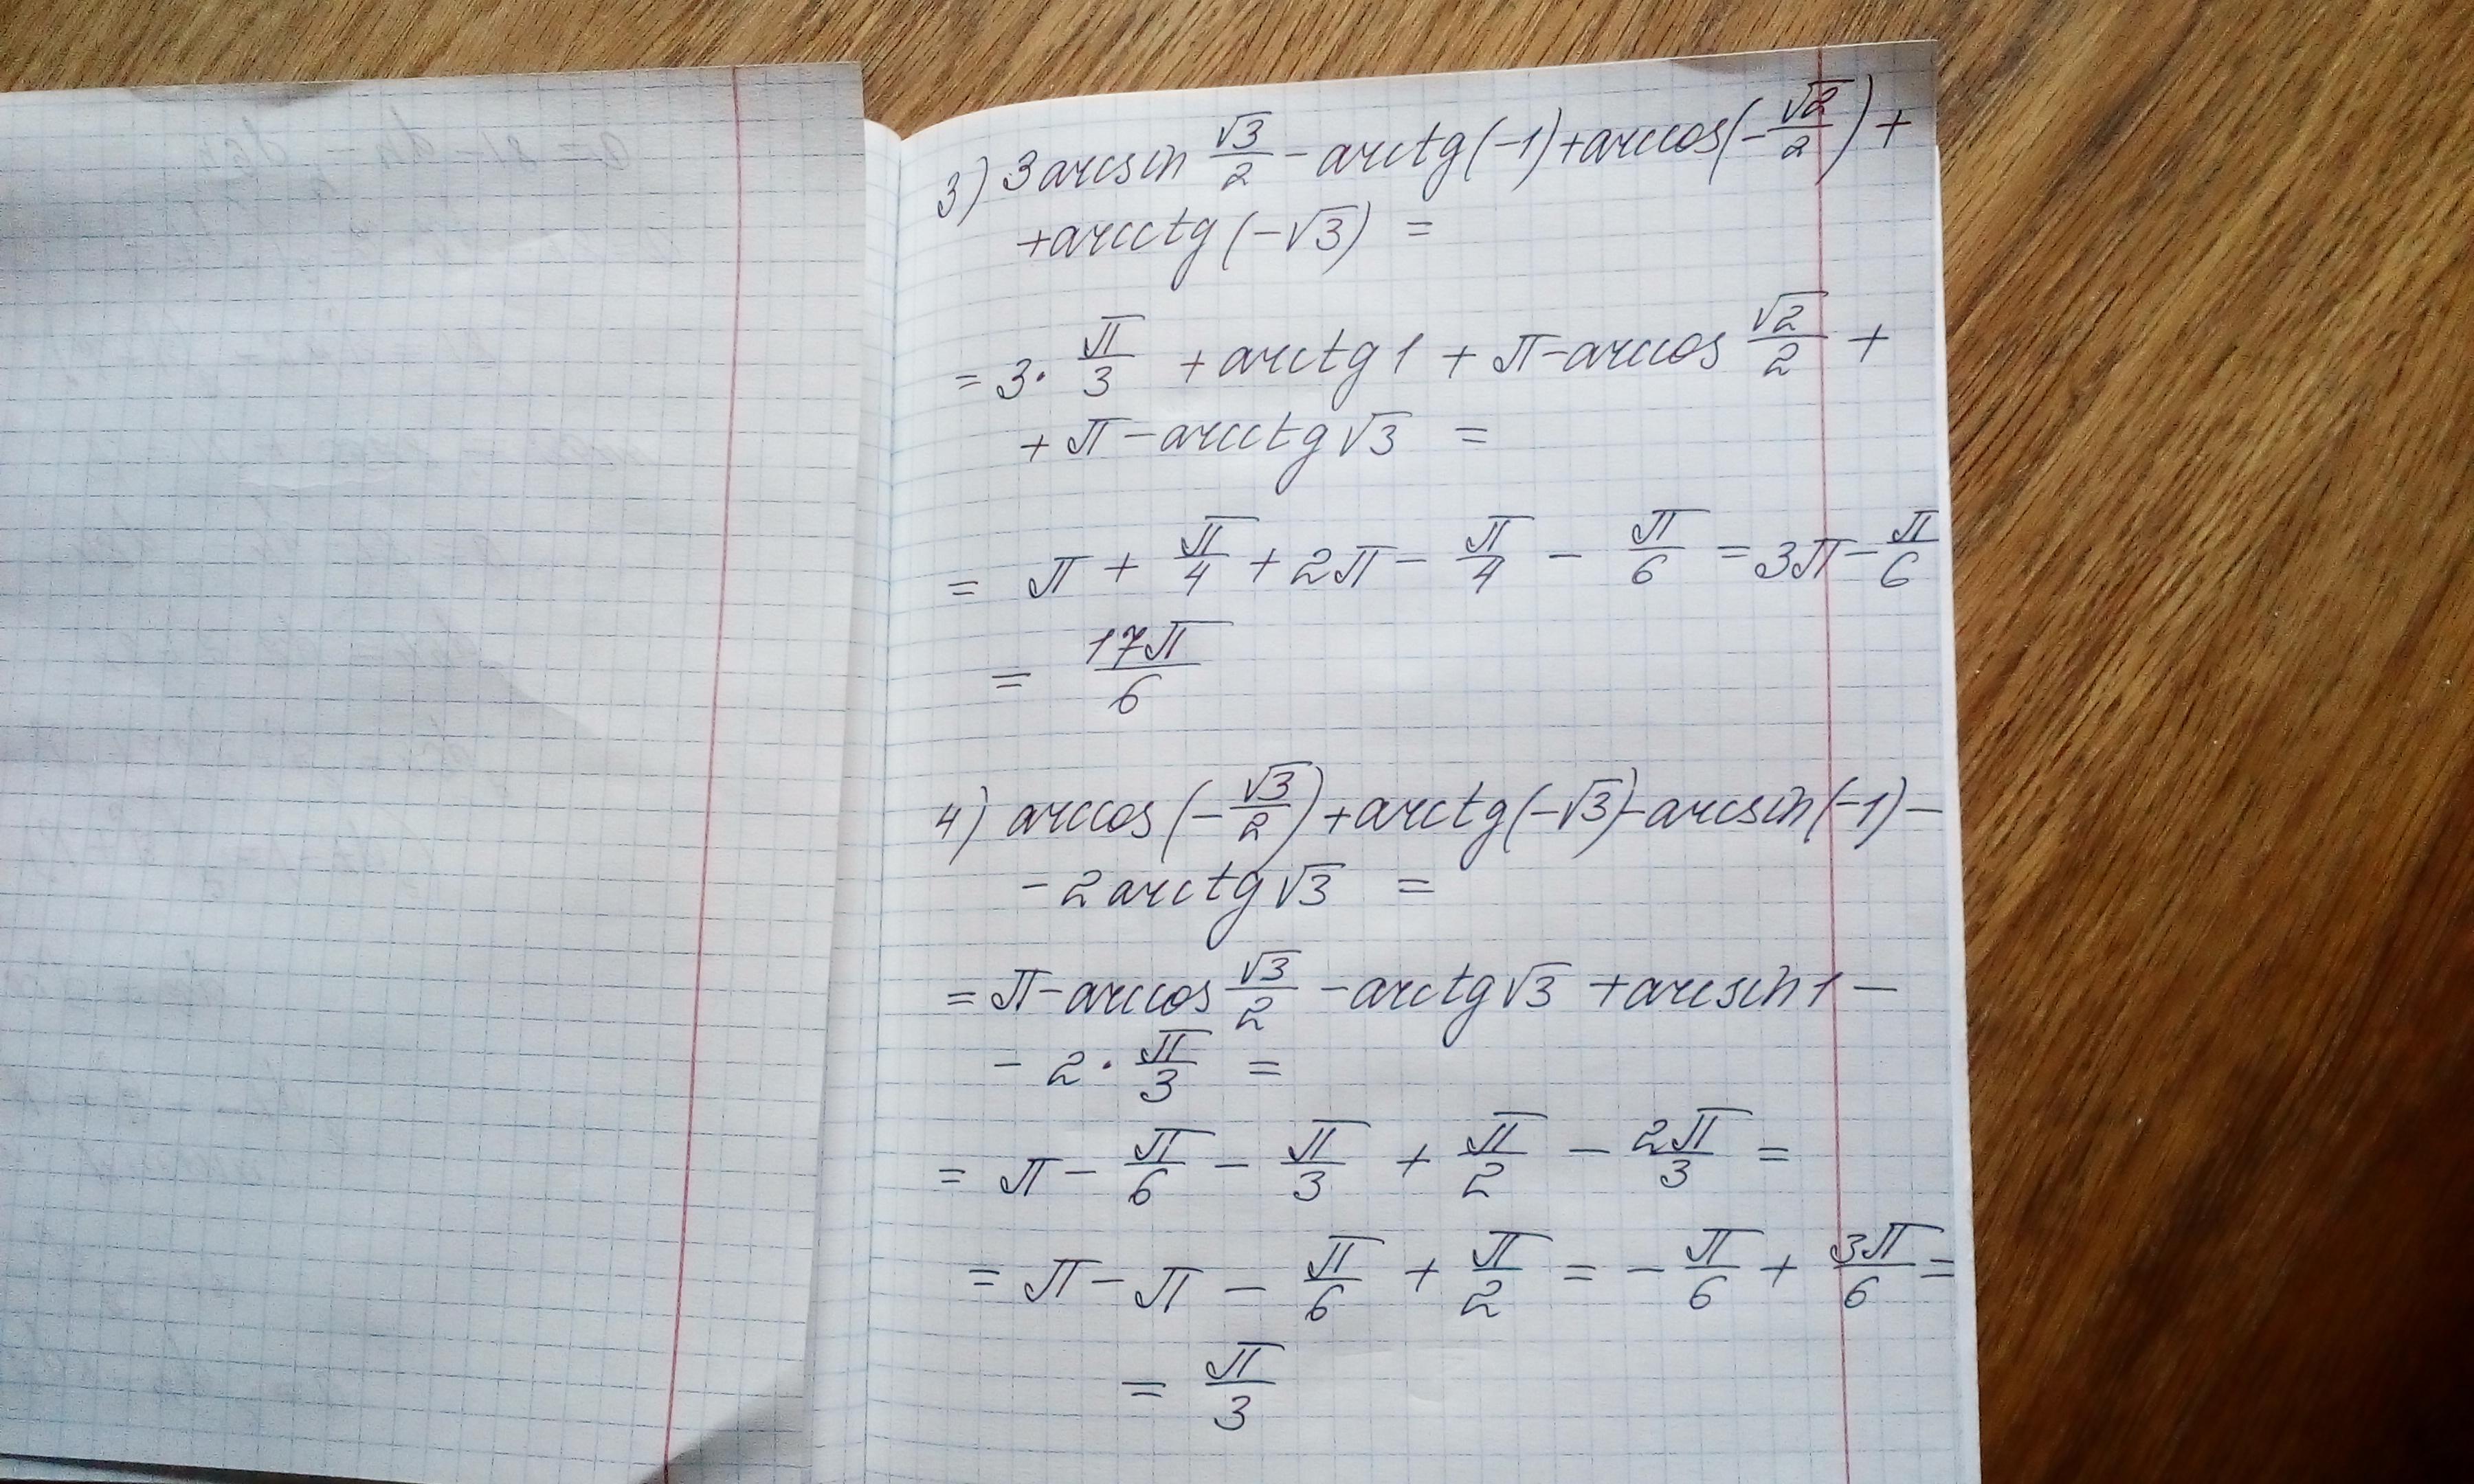 3) 3 arcsin √3/2 - arctg(-1) + arccos(-√2/2) +
+ arcctg(-√3) =
= 3 · π/3 + arctg 1 + π - arccos √2/2 +
+ π - arcctg √3 =
= π + π/4 + 2π - π/4 - π/6 = 3π - π/6
= 17π/6
4) arccos(-√3/2) + arctg(-√3) - arcsin(-1) -
- 2 arctg √3 =
= π - arccos √3/2 - arctg √3 + arcsin 1 -
- 2 · π/3 =
= π - π/6 - π/3 + π/2 - 2π/3 =
= π - π - π/6 + π/2 = - π/6 + 3π/6 =
= π/3